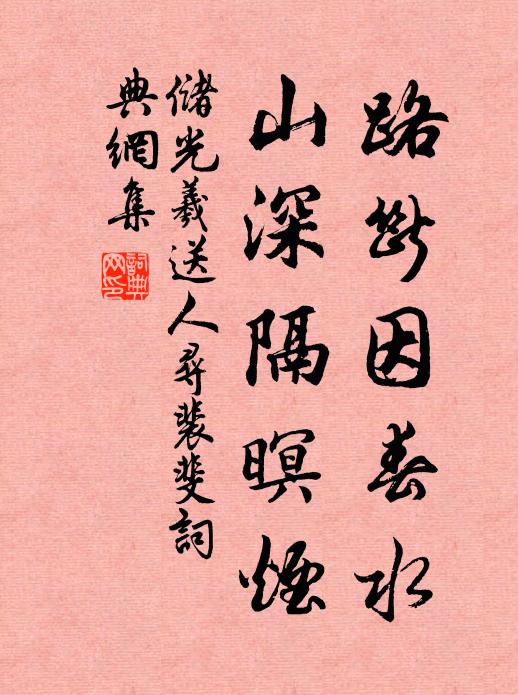 路斷因春水
山深隔暝煙
儲光羲送人尋裴斐詞
典網集
詞典網印